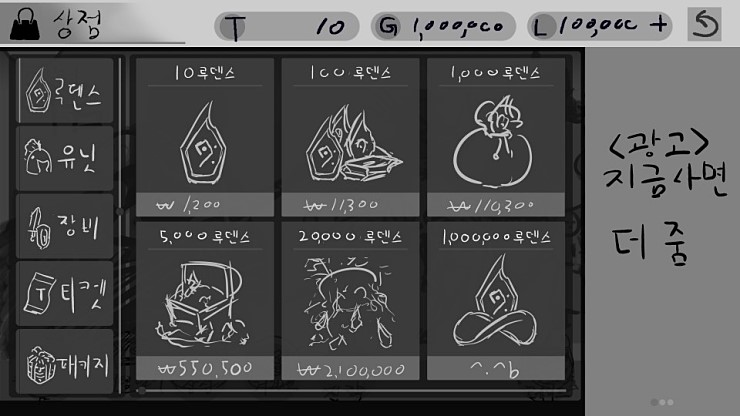 상점
T 10
G 1,000,000
L 100,000 +
루덴스
유닛
장비
T
티켓
패키지
10 루덴스
₩ 1,200
100 루덴스
₩ 11,300
1,000 루덴스
₩ 110,300
5,000 루덴스
₩550,500
20,000 루덴스
₩2,100,000
1,000,000 루덴스
<광고>
지금사면
더 줌